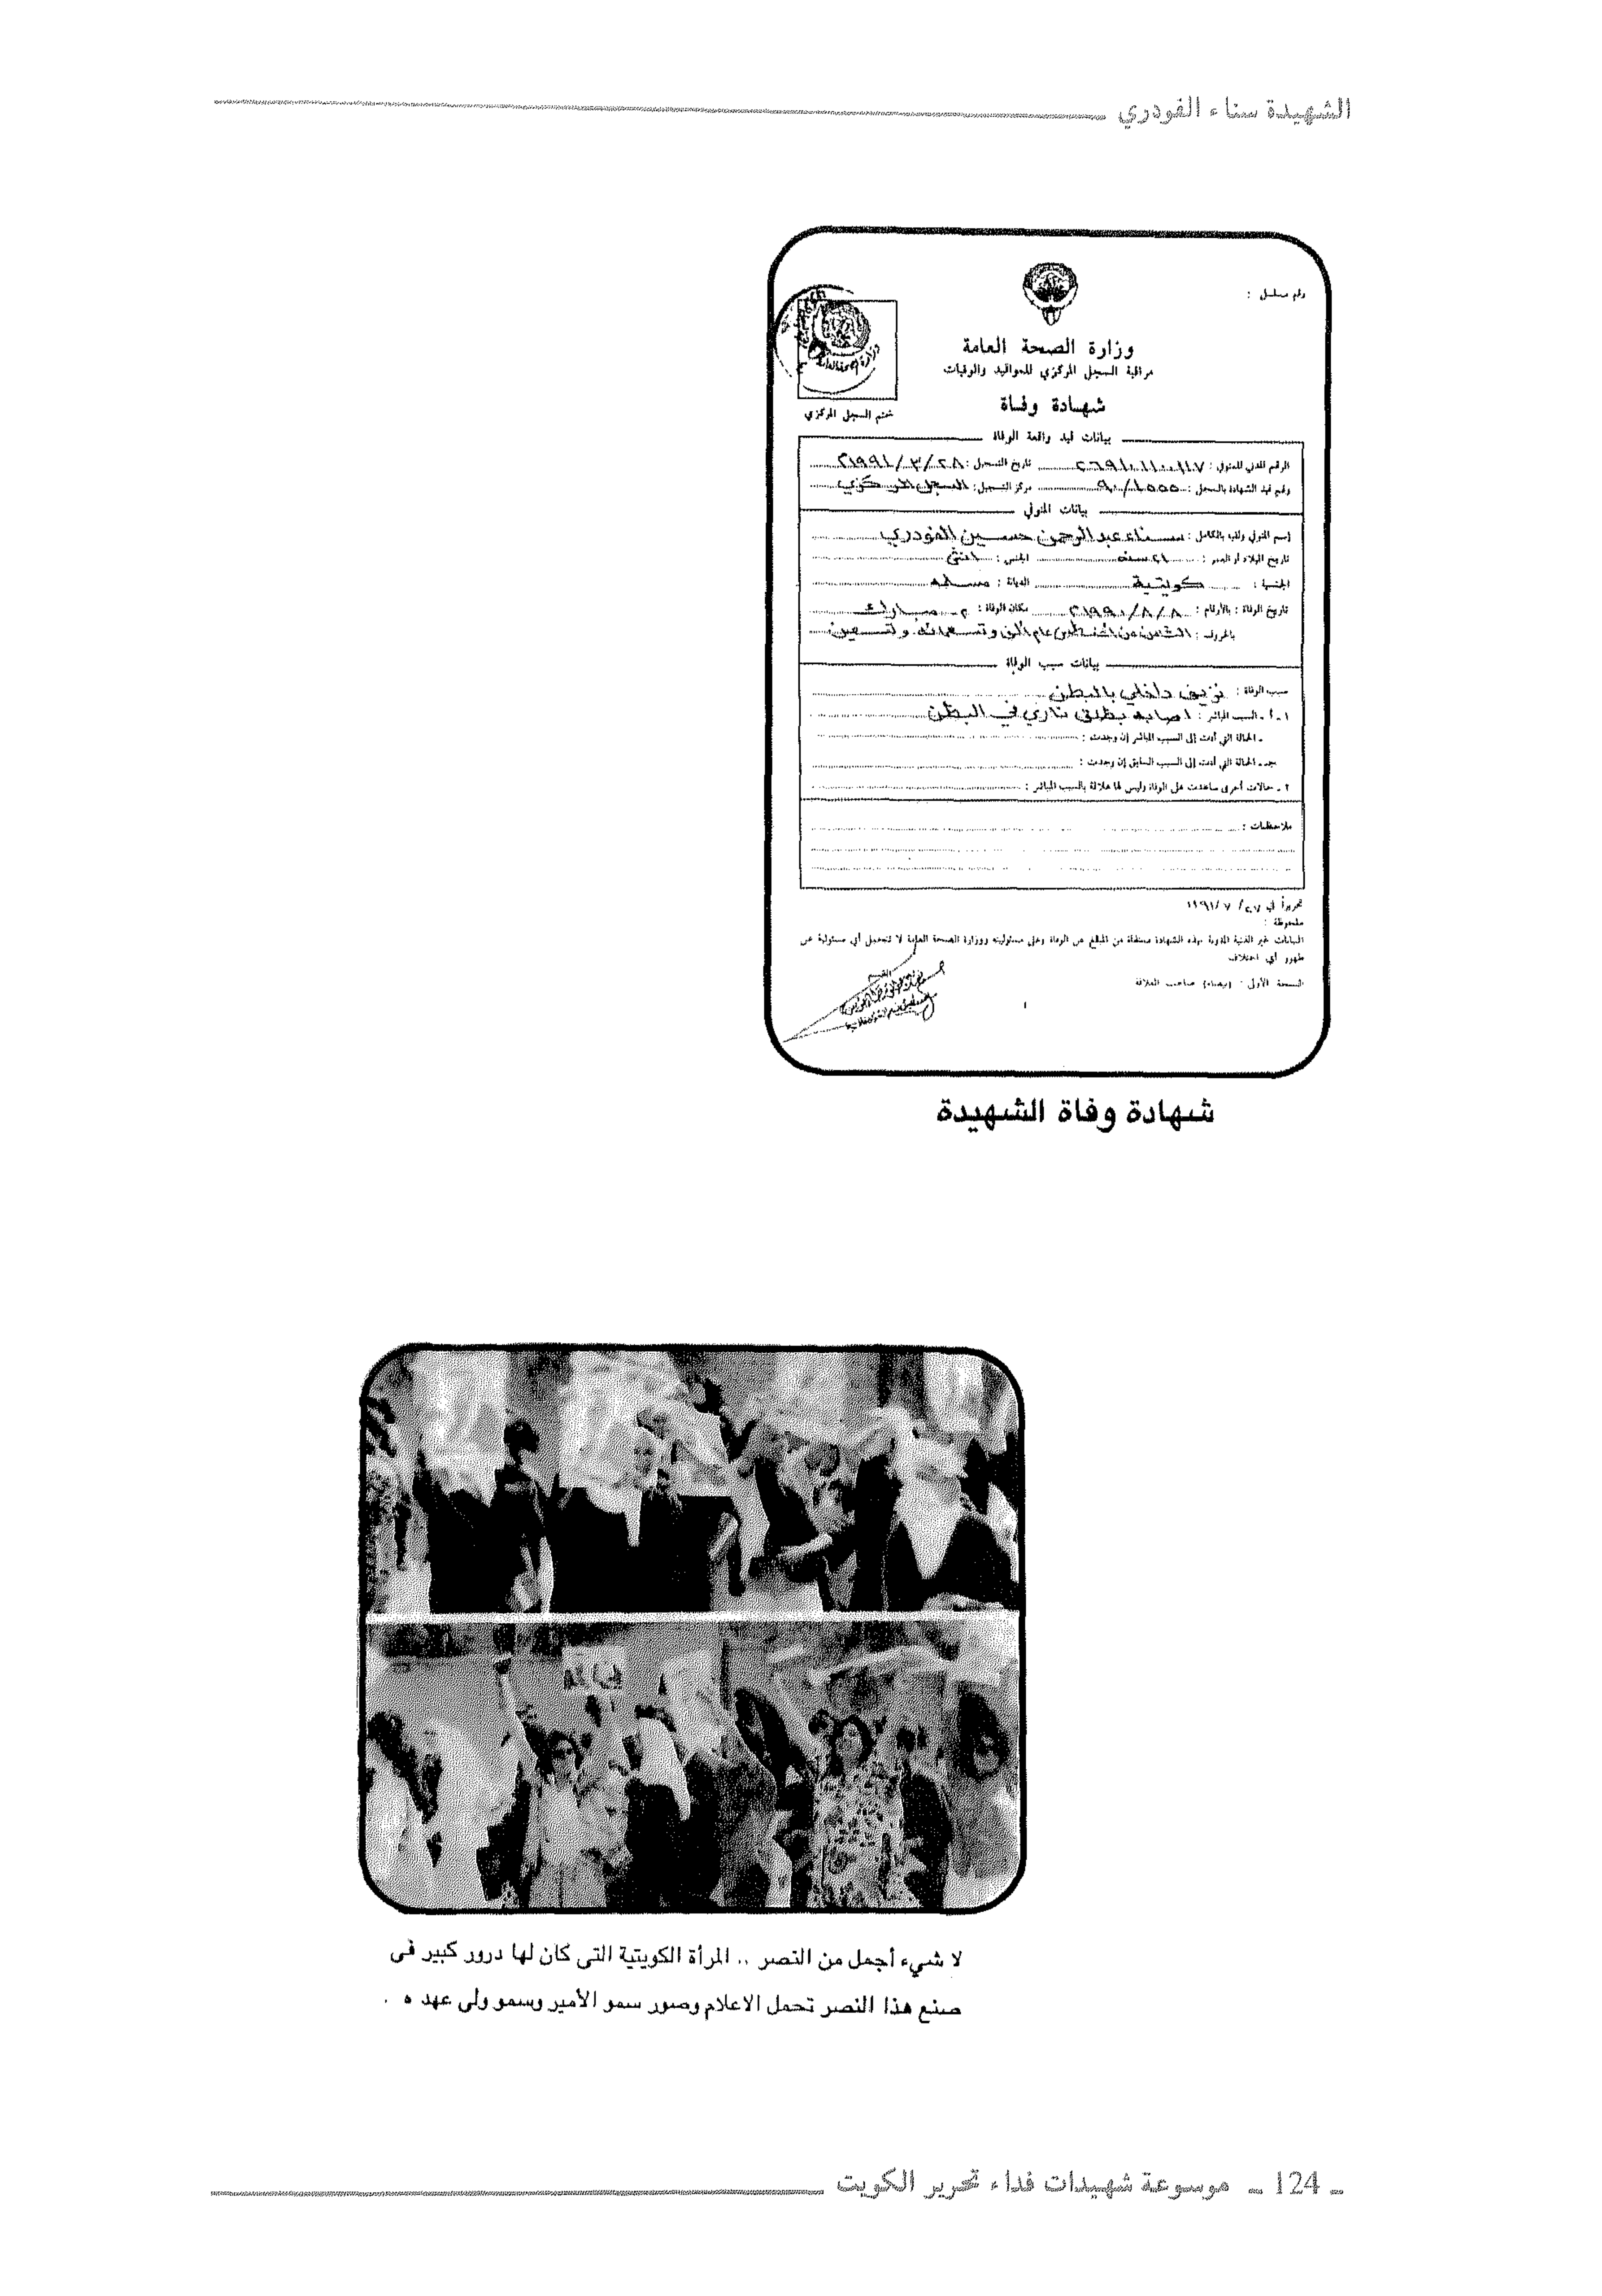 الشهيدة سناء الفودري
رقم مسلسل :
وزارة الصحة العامة
مراقبة السجل المركزي للمواليد والوفيات
ختم السجل المركزي
شهادة وفاة
بيانات قيد واقعة الوفاة
الرقم المدني للمتوفي : ٢٦٩١٠١١٠٠١١٧ تاريخ التسجيل : ٢٨/٣/١٩٩١
رقم قيد الشهادة بالسجل : ٩٠/١٥٥٥ مركز التسجيل : السجل المركزي
بيانات المتوفي
إسم المتوفي ولقبه بالكامل : سناء عبدالرحمن حسين الفودري
تاريخ الميلاد أو العمر : ٢١ سنه الجنس : انثى
الجنسية : كويتية الديانة : مسلمه
تاريخ الوفاة : بالأرقام : ٨/٨/١٩٩٠ مكان الوفاة : م. مبارك
بالحروف : الثامن من اغسطس عام الف وتسعمائه وتسعين
بيانات سبب الوفاة
سبب الوفاة : نزيف داخلي بالبطن
١ - أ - السبب المباشر : اصابه بطلق ناري في البطن
- الحالة التي أدت إلى السبب المباشر إن وجدت :
جـ - الحالة التي أدت إلى السبب السابق إن وجدت :
٢ - حالات أخرى ساعدت على الوفاة وليس لها علاقة بالسبب المباشر :
ملاحظات :
تحريراً في ٢٧/ ٧ /١٩٩١
ملحوظة :
البيانات غير الفنية المدونة بهذه الشهادة مستقاة من المبلغ عن الوفاة وعلى مسئوليته ووزارة الصحة العامة لا تتحمل أي مسئولية عن
ظهور أي اختلاف
النسخة الأولى : (بيضاء) صاحب العلاقة
شهادة وفاة الشهيدة
لا شيء أجمل من النصر .. المرأة الكويتية التى كان لها درور كبير فى
صنع هذا النصر تحمل الاعلام وصور سمو الأمير وسمو ولى عهد ه .
ـ 124 ـ موسوعة شهيدات فداء تحرير الكويت